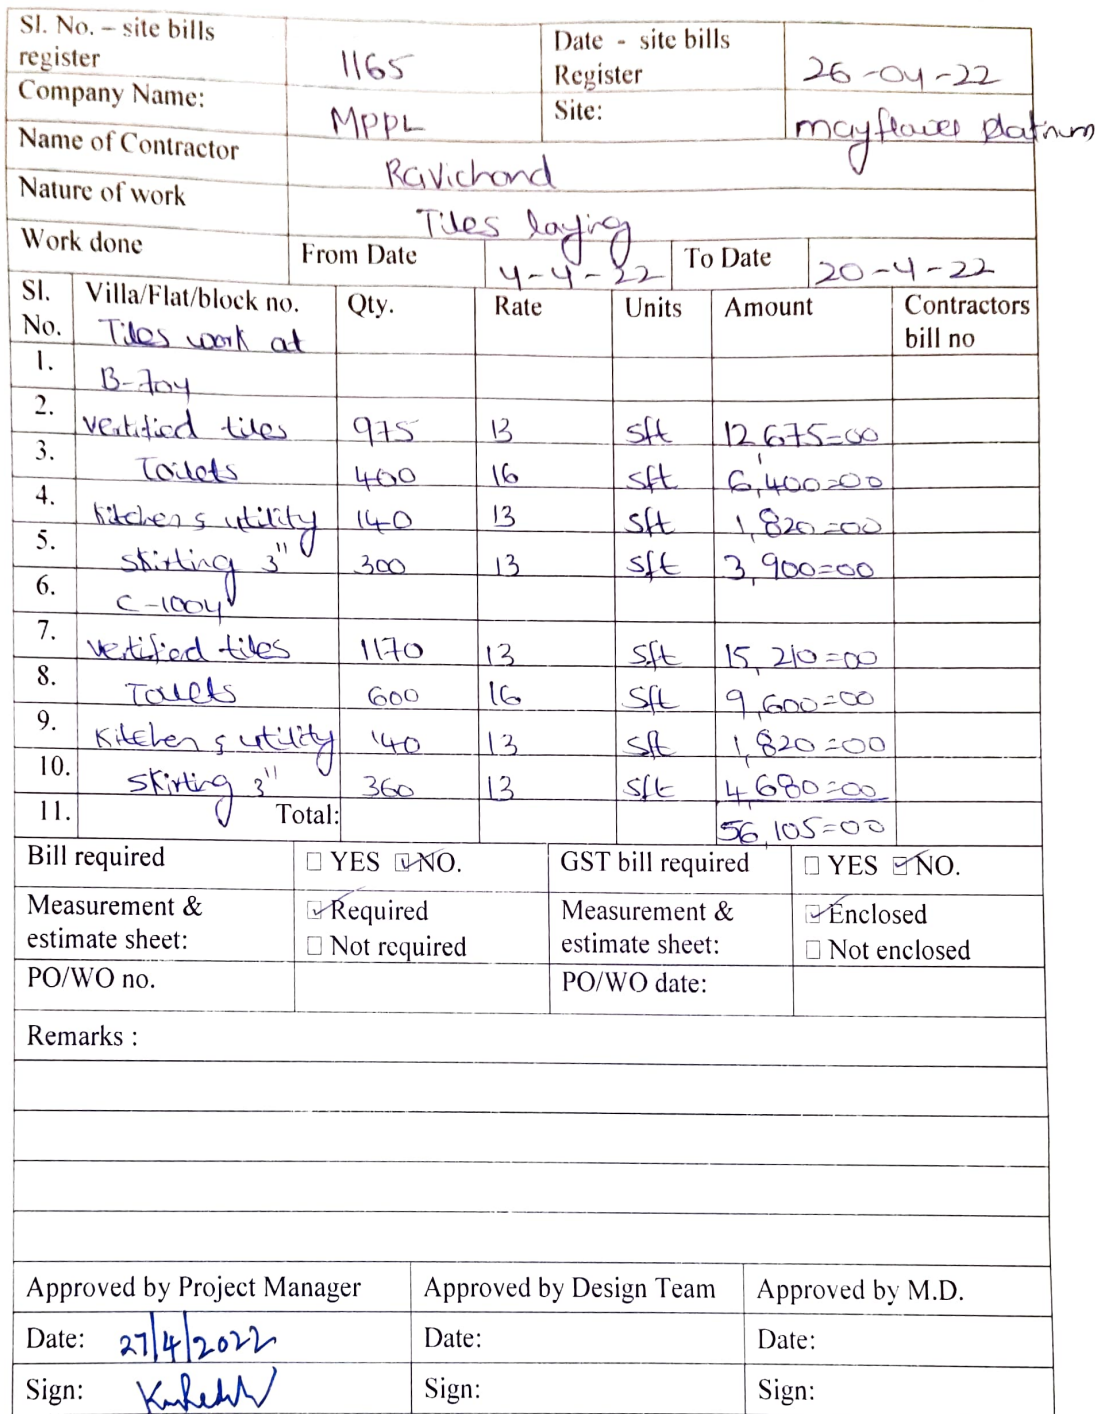 Sl. No. – site bills register 1165 Date - site bills Register 26-04-22
Company Name: MPPL Site: mayflower platinum
Name of Contractor Ravichand
Nature of work Tiles laying
Work done From Date 4-4-22 To Date 20-4-22
Sl. No. Villa/Flat/block no. Qty. Rate Units Amount Contractors bill no
Tiles work at
1. B-704
2. vertified tiles 975 13 sft 12,675=00
3. Toilets 400 16 sft 6,400=00
4. kitchen & utility 140 13 sft 1,820=00
5. skirting 3" 300 13 sft 3,900=00
6. C-1004
7. vertified tiles 1170 13 sft 15,210=00
8. Toilets 600 16 sft 9,600=00
9. Kitchen & utility 140 13 sft 1,820=00
10. skirting 3" 360 13 sft 4,680=00
11. Total: 56,105=00
Bill required □ YES ☑ NO. GST bill required □ YES ☑ NO.
Measurement & estimate sheet: ☑ Required Measurement & estimate sheet: ☑ Enclosed
□ Not required □ Not enclosed
PO/WO no. PO/WO date:
Remarks :
Approved by Project Manager Approved by Design Team Approved by M.D.
Date: 27/4/2022 Date: Date:
Sign: Sign: Sign: